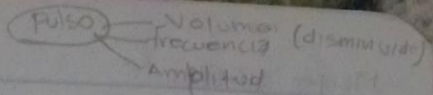 Pulso
Volumen
frecuencia (disminuido)
Amplitud